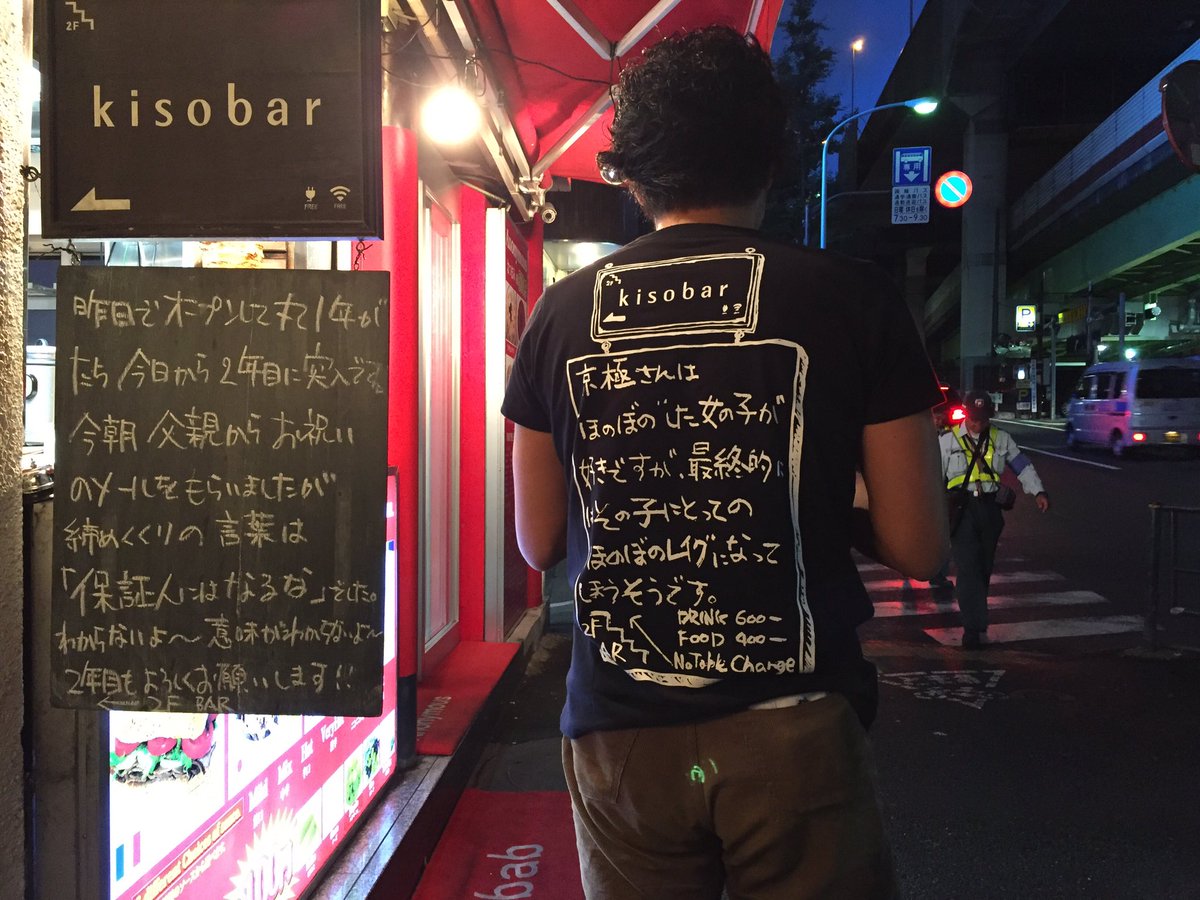 2F
kisobar
FREE
FREE
昨日でオープンして丸1年が
たち今日から2年目に突入です。
今朝父親からお祝い
のメールをもらいましたが
締めくくりの言葉は
「保証人にはなるな」でした。
わからないよ〜意味がわからないよ〜
2年目もよろしくお願いします!!
← 2F BAR
2F
kisobar
京極さんは
ほのぼのした女の子が
好きですが、最終的に
はその子にとっての
ほのぼのレイクになって
しまうそうです。
2F
BAR
DRINK 600-
FOOD 400-
No Table Charge
専用
7:30-9:30
P
Different Choices of sauces
Mild
Mix
Hot
Very Hot
bab